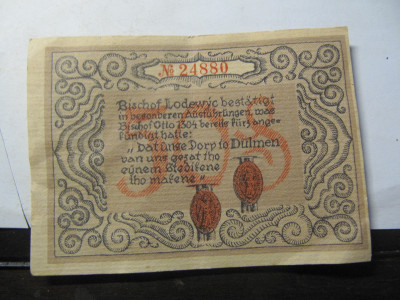 № 24880
Bischof Lodewyc bestätigt
in besonderen Ausführungen, was
Bischof Otto 1304 bereits kurz ange-
kündigt hatte:
"Dat unse Dorp to Dülmen
van uns gesat tho
eynem Stedikene
tho makene"